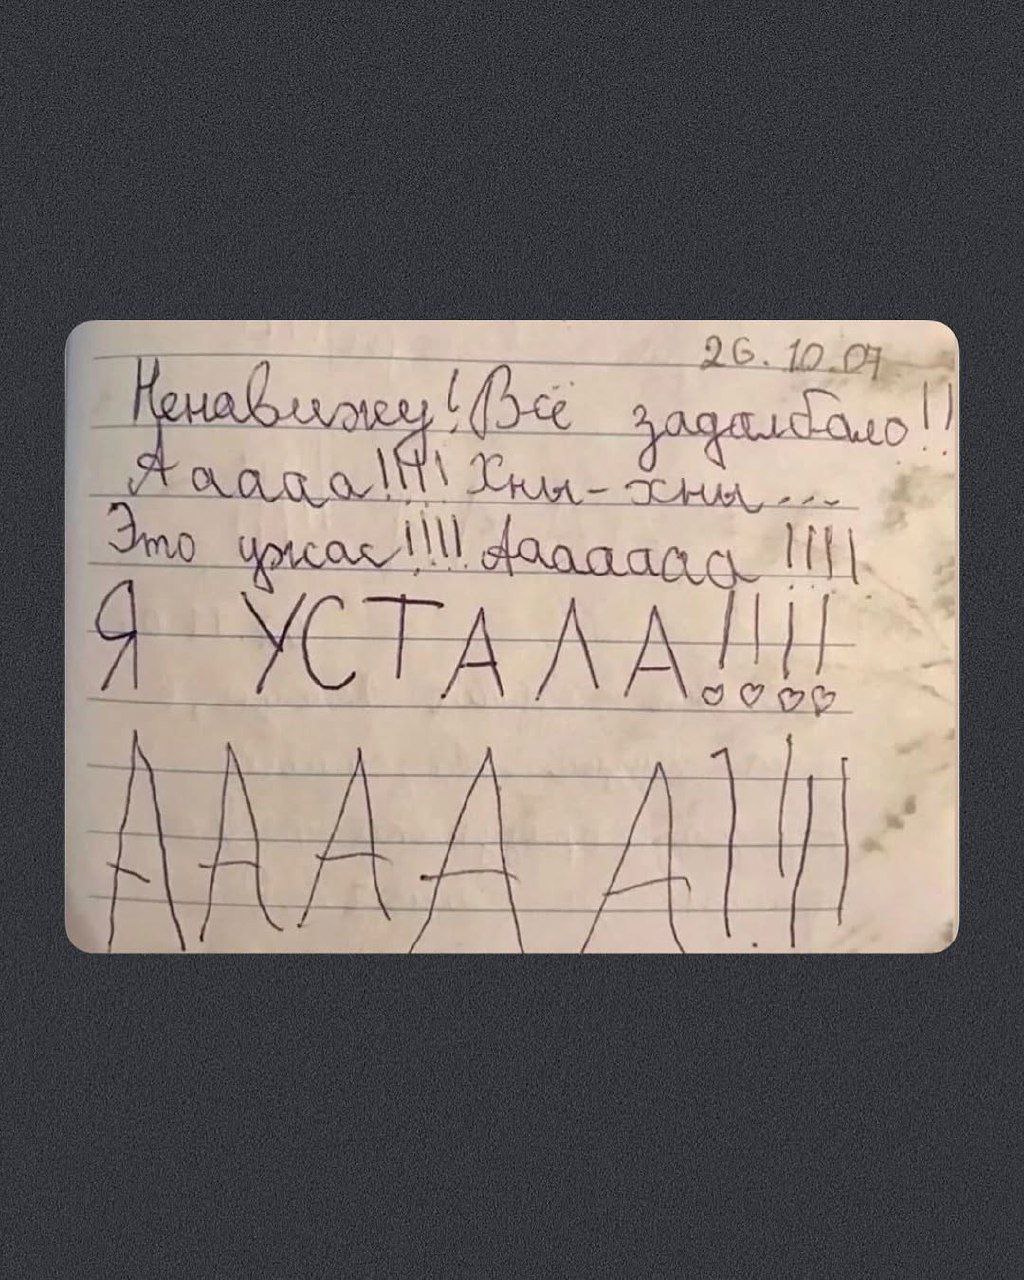 26.10.07
Ненавижу! Всё задалбало!!
Ааааа!!!!! Хны-хны...
Это ужас!!!! Ааааааа!!!!
Я УСТАЛА!!!!
ААААА!!!!